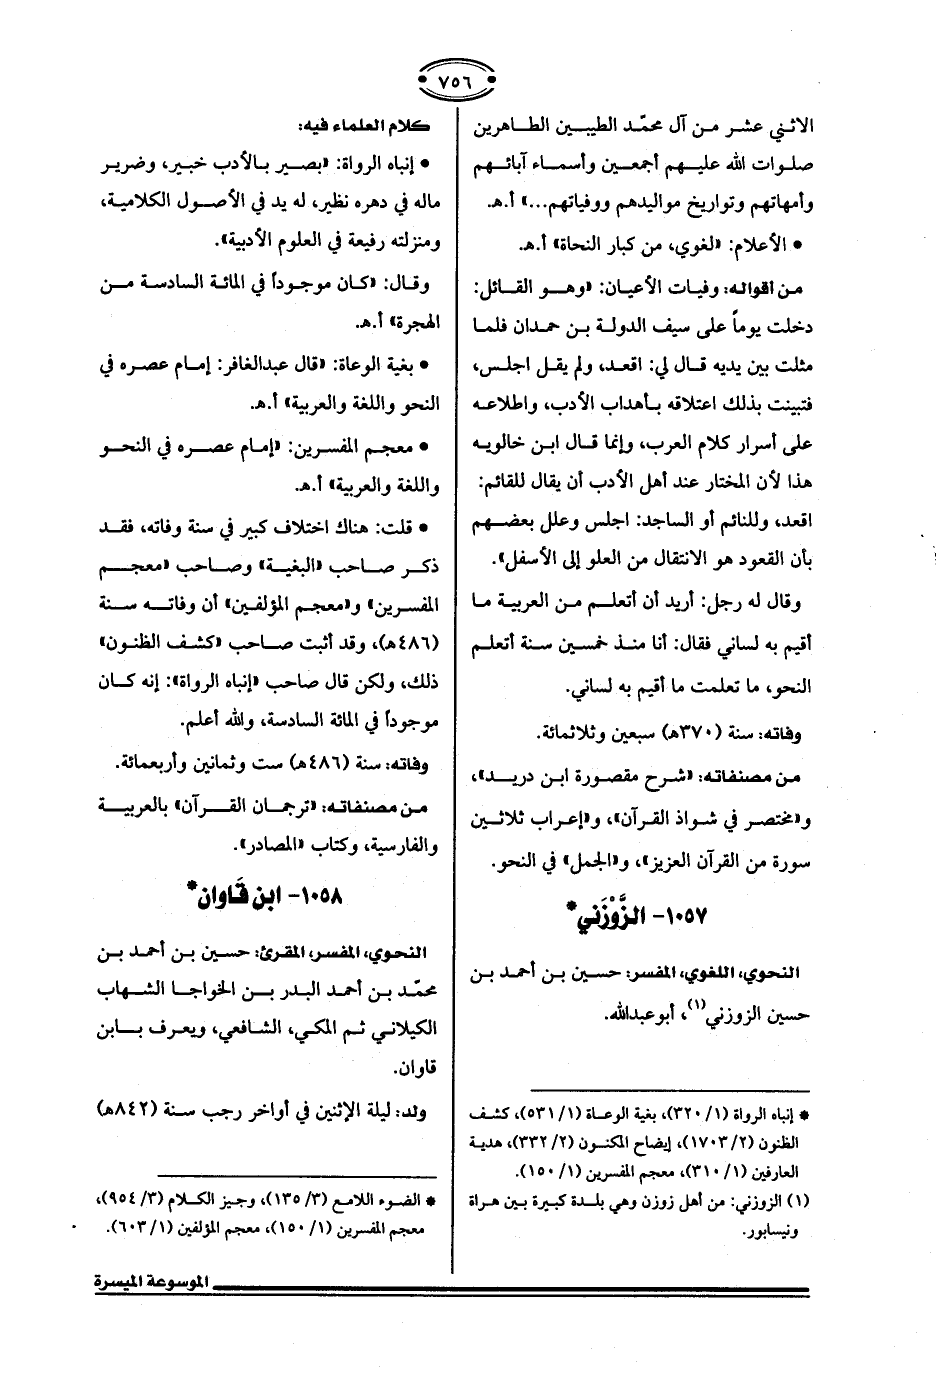 ٧٥٦
الاثني عشر من آل محمّد الطيبين الطاهرين
صلوات الله عليهم أجمعين وأسماء آبائهم
وأمهاتهم وتواريخ مواليدهم ووفياتهم...» أ.هـ.
• الأعلام: «لغوي، من كبار النحاة» أ.هـ.
من أقواله: وفيات الأعيان: «وهو القائل:
دخلت يوماً على سيف الدولة بن حمدان فلما
مثلت بين يديه قال لي: اقعد، ولم يقل اجلس،
فتبينت بذلك اعتلاقه بأهداب الأدب، واطلاعه
على أسرار كلام العرب، وإنما قال ابن خالويه
هذا لأن المختار عند أهل الأدب أن يقال للقائم:
اقعد، وللنائم أو الساجد: اجلس وعلل بعضهم
بأن القعود هو الانتقال من العلو إلى الأسفل».
وقال له رجل: أريد أن أتعلم من العربية ما
أقيم به لساني فقال: أنا منذ خمسين سنة أتعلم
النحو، ما تعلمت ما أقيم به لساني.
وفاته: سنة (٣٧٠هـ) سبعين وثلاثمائة.
من مصنفاته: «شرح مقصورة ابن دريد»،
و«مختصر في شواذ القرآن»، و«إعراب ثلاثين
سورة من القرآن العزيز»، و«الجمل» في النحو.
١٠٥٧- الزَّوْزَني*
النحوي، اللغوي، المفسر: حسين بن أحمد بن
حسين الزوزني(١)، أبو عبدالله.
* إنباه الرواة (١/ ٣٢٠)، بغية الوعاة (١/ ٥٣١)، كشف
الظنون (٢/ ١٧٠٣)، إيضاح المكنون (٢/ ٣٣٢)، هدية
العارفين (١/ ٣١٠)، معجم المفسرين (١/ ١٥٠).
(١) الزوزني: من أهل زوزن وهي بلدة كبيرة بين هراة
ونيسابور.
كلام العلماء فيه:
• إنباه الرواة: «بصير بالأدب خبير، وضرير
ماله في دهره نظير، له يد في الأصول الكلامية،
ومنزلته رفيعة في العلوم الأدبية».
وقال: «كان موجوداً في المائة السادسة من
الهجرة» أ.هـ.
• بغية الوعاة: «قال عبدالغافر: إمام عصره في
النحو واللغة والعربية» أ.هـ.
• معجم المفسرين: «إمام عصره في النحو
واللغة والعربية» أ.هـ.
• قلت: هناك اختلاف كبير في سنة وفاته، فقد
ذكر صاحب «البغية» وصاحب «معجم
المفسرين» و«معجم المؤلفين» أن وفاته سنة
(٤٨٦هـ)، وقد أثبت صاحب «كشف الظنون»
ذلك، ولكن قال صاحب «إنباه الرواة»: إنه كان
موجوداً في المائة السادسة، والله أعلم.
وفاته: سنة (٤٨٦هـ) ست وثمانين وأربعمائة.
من مصنفاته: «ترجمان القرآن» بالعربية
والفارسية، وكتاب «المصادر».
١٠٥٨- ابن قَاوان*
النحوي، المفسر، المقرئ: حسين بن أحمد بن
محمّد بن أحمد البدر بن الخواجا الشهاب
الكيلاني ثم المكي، الشافعي، ويعرف بابن
قاوان.
ولد: ليلة الإثنين في أواخر رجب سنة (٨٤٢هـ)
* الضوء اللامع (٣/ ١٣٥)، وجيز الكلام (٣/ ٩٥٤)،
معجم المفسرين (١/ ١٥٠)، معجم المؤلفين (١/ ٦٠٣).
الموسوعة الميسرة